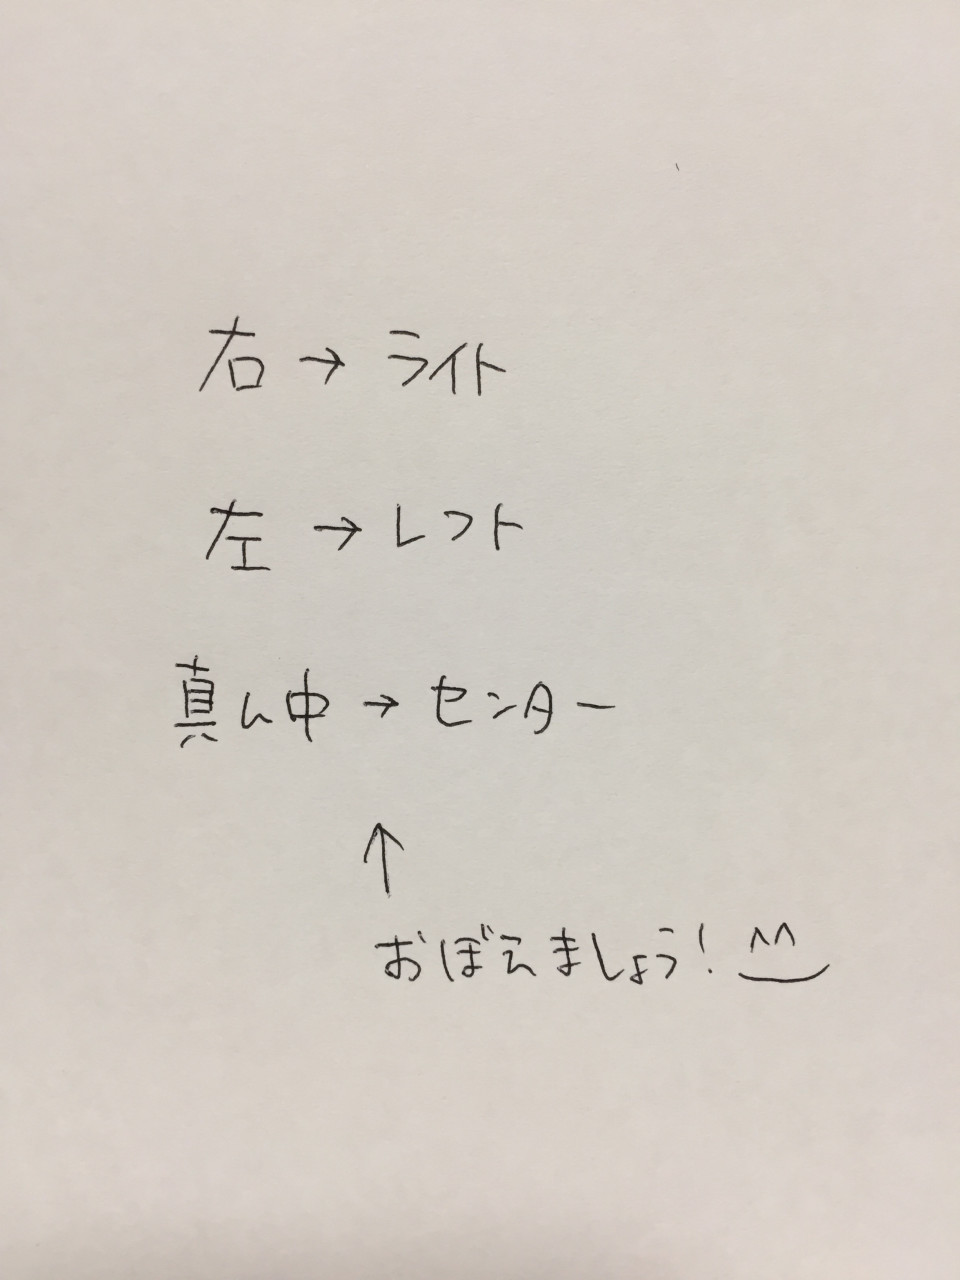 右→ライト
左→レフト
真ん中→センター
↑
おぼえましょう! ^^